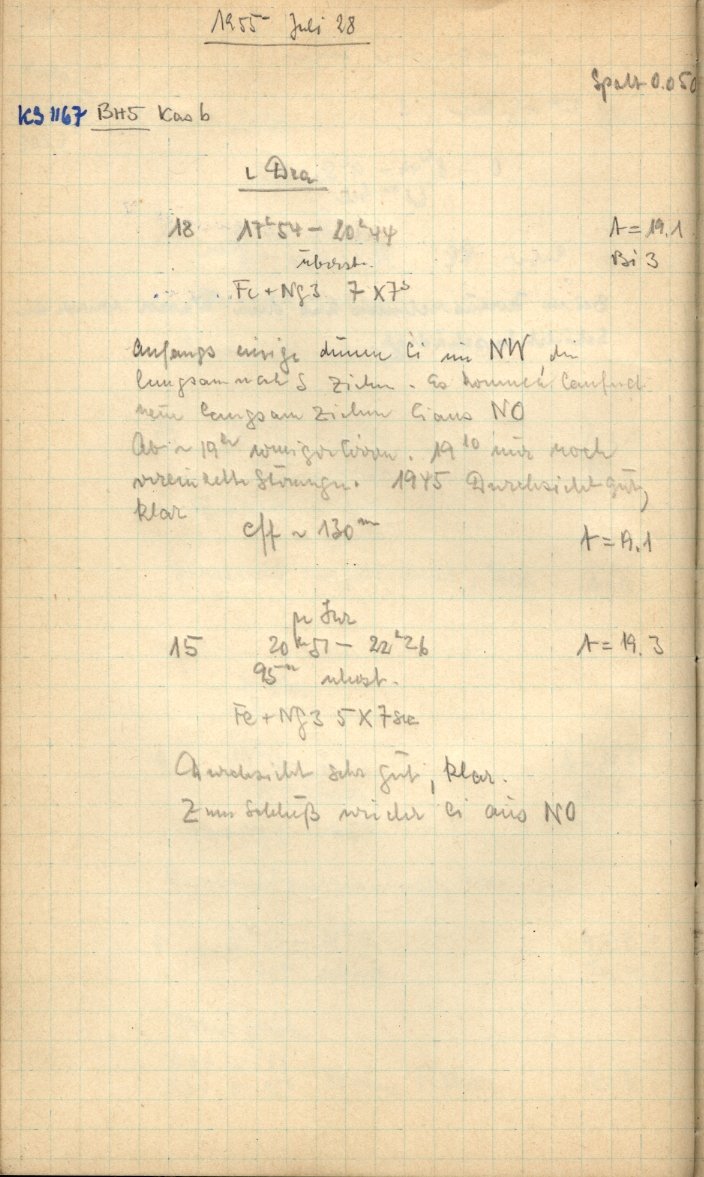 1955 Juli 28
Spalt 0.050
KS 1167 BH5 Kas b
ι Dra
18 17ʰ54 – 20ʰ44 A = 19.1
überst. Bi 3
Fe + Ng 3 7 X 7ˢ
Anfangs einige dünne Ci im NW, die
langsam nach S ziehen. Es kommen laufend
langsam ziehen Ci aus NO
Ab ~ 19ʰ weniger Cirren. 19¹⁰ nur noch
vereinzelte Störungen. 1945 Durchsicht gut,
klar
eff ~ 130ᵐ A = 19.1
μ Her
15 20ʰ51 – 22ʰ26 A = 19.3
95ᵐ überst.
Fe + Ng 3 5 X 7 sec
Durchsicht sehr gut, klar.
Zum Schluß wieder Ci aus NO